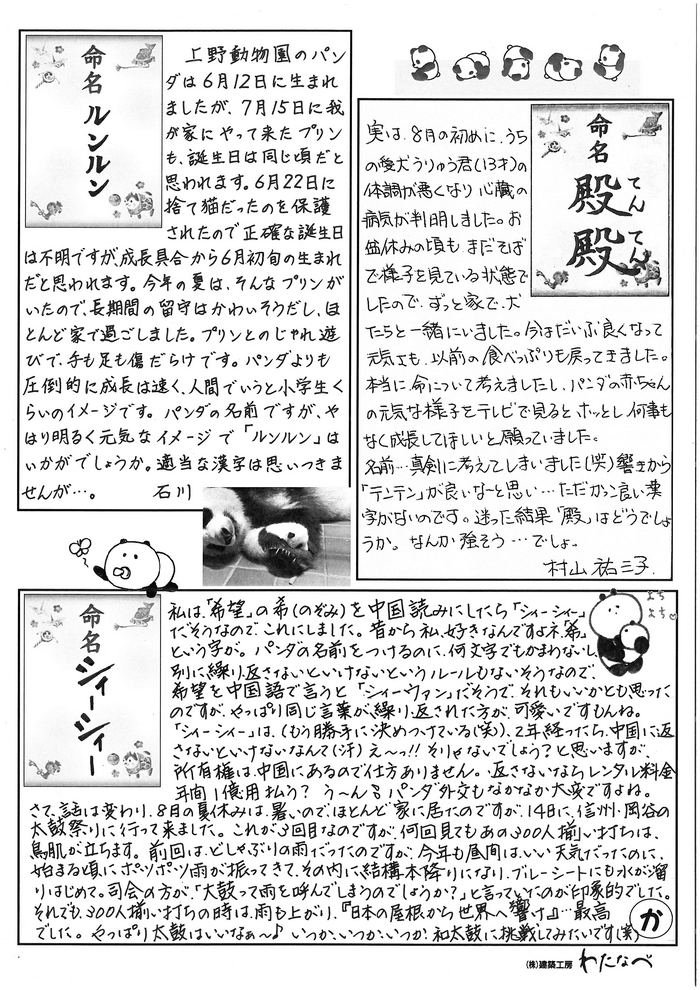 命名
ルンルン
上野動物園のパン
ダは6月12日に生まれ
ましたが、7月15日に我
が家にやって来たプリン
も、誕生日は同じ頃だと
思われます。6月22日に
捨て猫だったのを保護
されたので正確な誕生日
は不明ですが、成長具合から6月初旬の生まれ
だと思われます。今年の夏は、そんなプリンが
いたので、長期間の留守はかわいそうだし、ほ
とんど家で過ごしました。プリンとのじゃれ遊
びで、手も足も傷だらけです。パンダよりも
圧倒的に成長は速く、人間でいうと小学生く
らいのイメージです。パンダの名前ですが、や
はり明るく元気なイメージで「ルンルン」は
いかがでしょうか。適当な漢字は思いつきま
せんが…。 石川
命名
殿殿
てんてん
実は、8月の初めに、うち
の愛犬うりゅう君(13才)の
体調が悪くなり心臓の
病気が判明しました。お
盆休みの頃も まだそば
で様子を見ている状態で
したので、ずっと家で、犬
たちと一緒にいました。今はだいぶ良くなって
元気さも、以前の食べっぷりも戻ってきました。
本当に命について考えましたし、パンダの赤ちゃん
の元気な様子をテレビで見るとホッとし何事も
なく成長してほしいと願っていました。
名前…真剣に考えてしまいました(笑)響きから
「テンテン」が良いなーと思い…ただかっこ良い漢
字がないのです。迷った結果「殿」はどうでしょ
うか。なんか強そう…でしょ。
村山 祐三子
よち
よち
命名
シィーシィー
私は、「希望」の希(のぞみ)を中国読みにしたら「シィーシィー」
だそうなので、これにしました。昔から私、好きなんですよネ「希」
という字が。パンダの名前をつけるのに、何文字でもかまわないし
別に繰り返さないといけないというルールもないそうなので、
希望を中国語で言うと「シィーヴァン」だそうで、それもいいかとも思った
のですが、やっぱり同じ言葉が繰り返された方が、可愛いですもんね。
「シィーシィー」は、(もう勝手に決めつけている(笑)、2年経ったら、中国に返
さないといけないなんて(汗)え〜っ!! そりゃないでしょう?と思いますが、
所有権は、中国にあるので仕方ありません。返さないならレンタル料金
年間1億用払う? う〜ん パンダ外交もなかなか大変ですよね。
さて、話は変わり、8月の夏休みは、暑いのでほとんど家に居たのですが、14日に、信州・岡谷の
太鼓祭りに行って来ました。これが3回目なのですが、何回見てもあの300人揃い打ちは、
鳥肌が立ちます。前回は、どしゃぶりの雨だったのですが、今年も昼間は、いい天気だったのに、
始まる頃にポツポツ雨が振ってきて、その内に結構本降りになり、ブルーシートにも水が溜
りはじめて。司会の方が、「太鼓って雨を呼んでしまうのでしょうか?」と言っていたのが印象的でした。
それでも、300人揃い打ちの時は、雨も上がり、『日本の屋根から世界へ響け』…最高
でした。やっぱり太鼓はいいなぁ〜♪ いつか、いつか、いつか、和太鼓に挑戦してみたいです(笑)
か
(株)建築工房 わたなべ